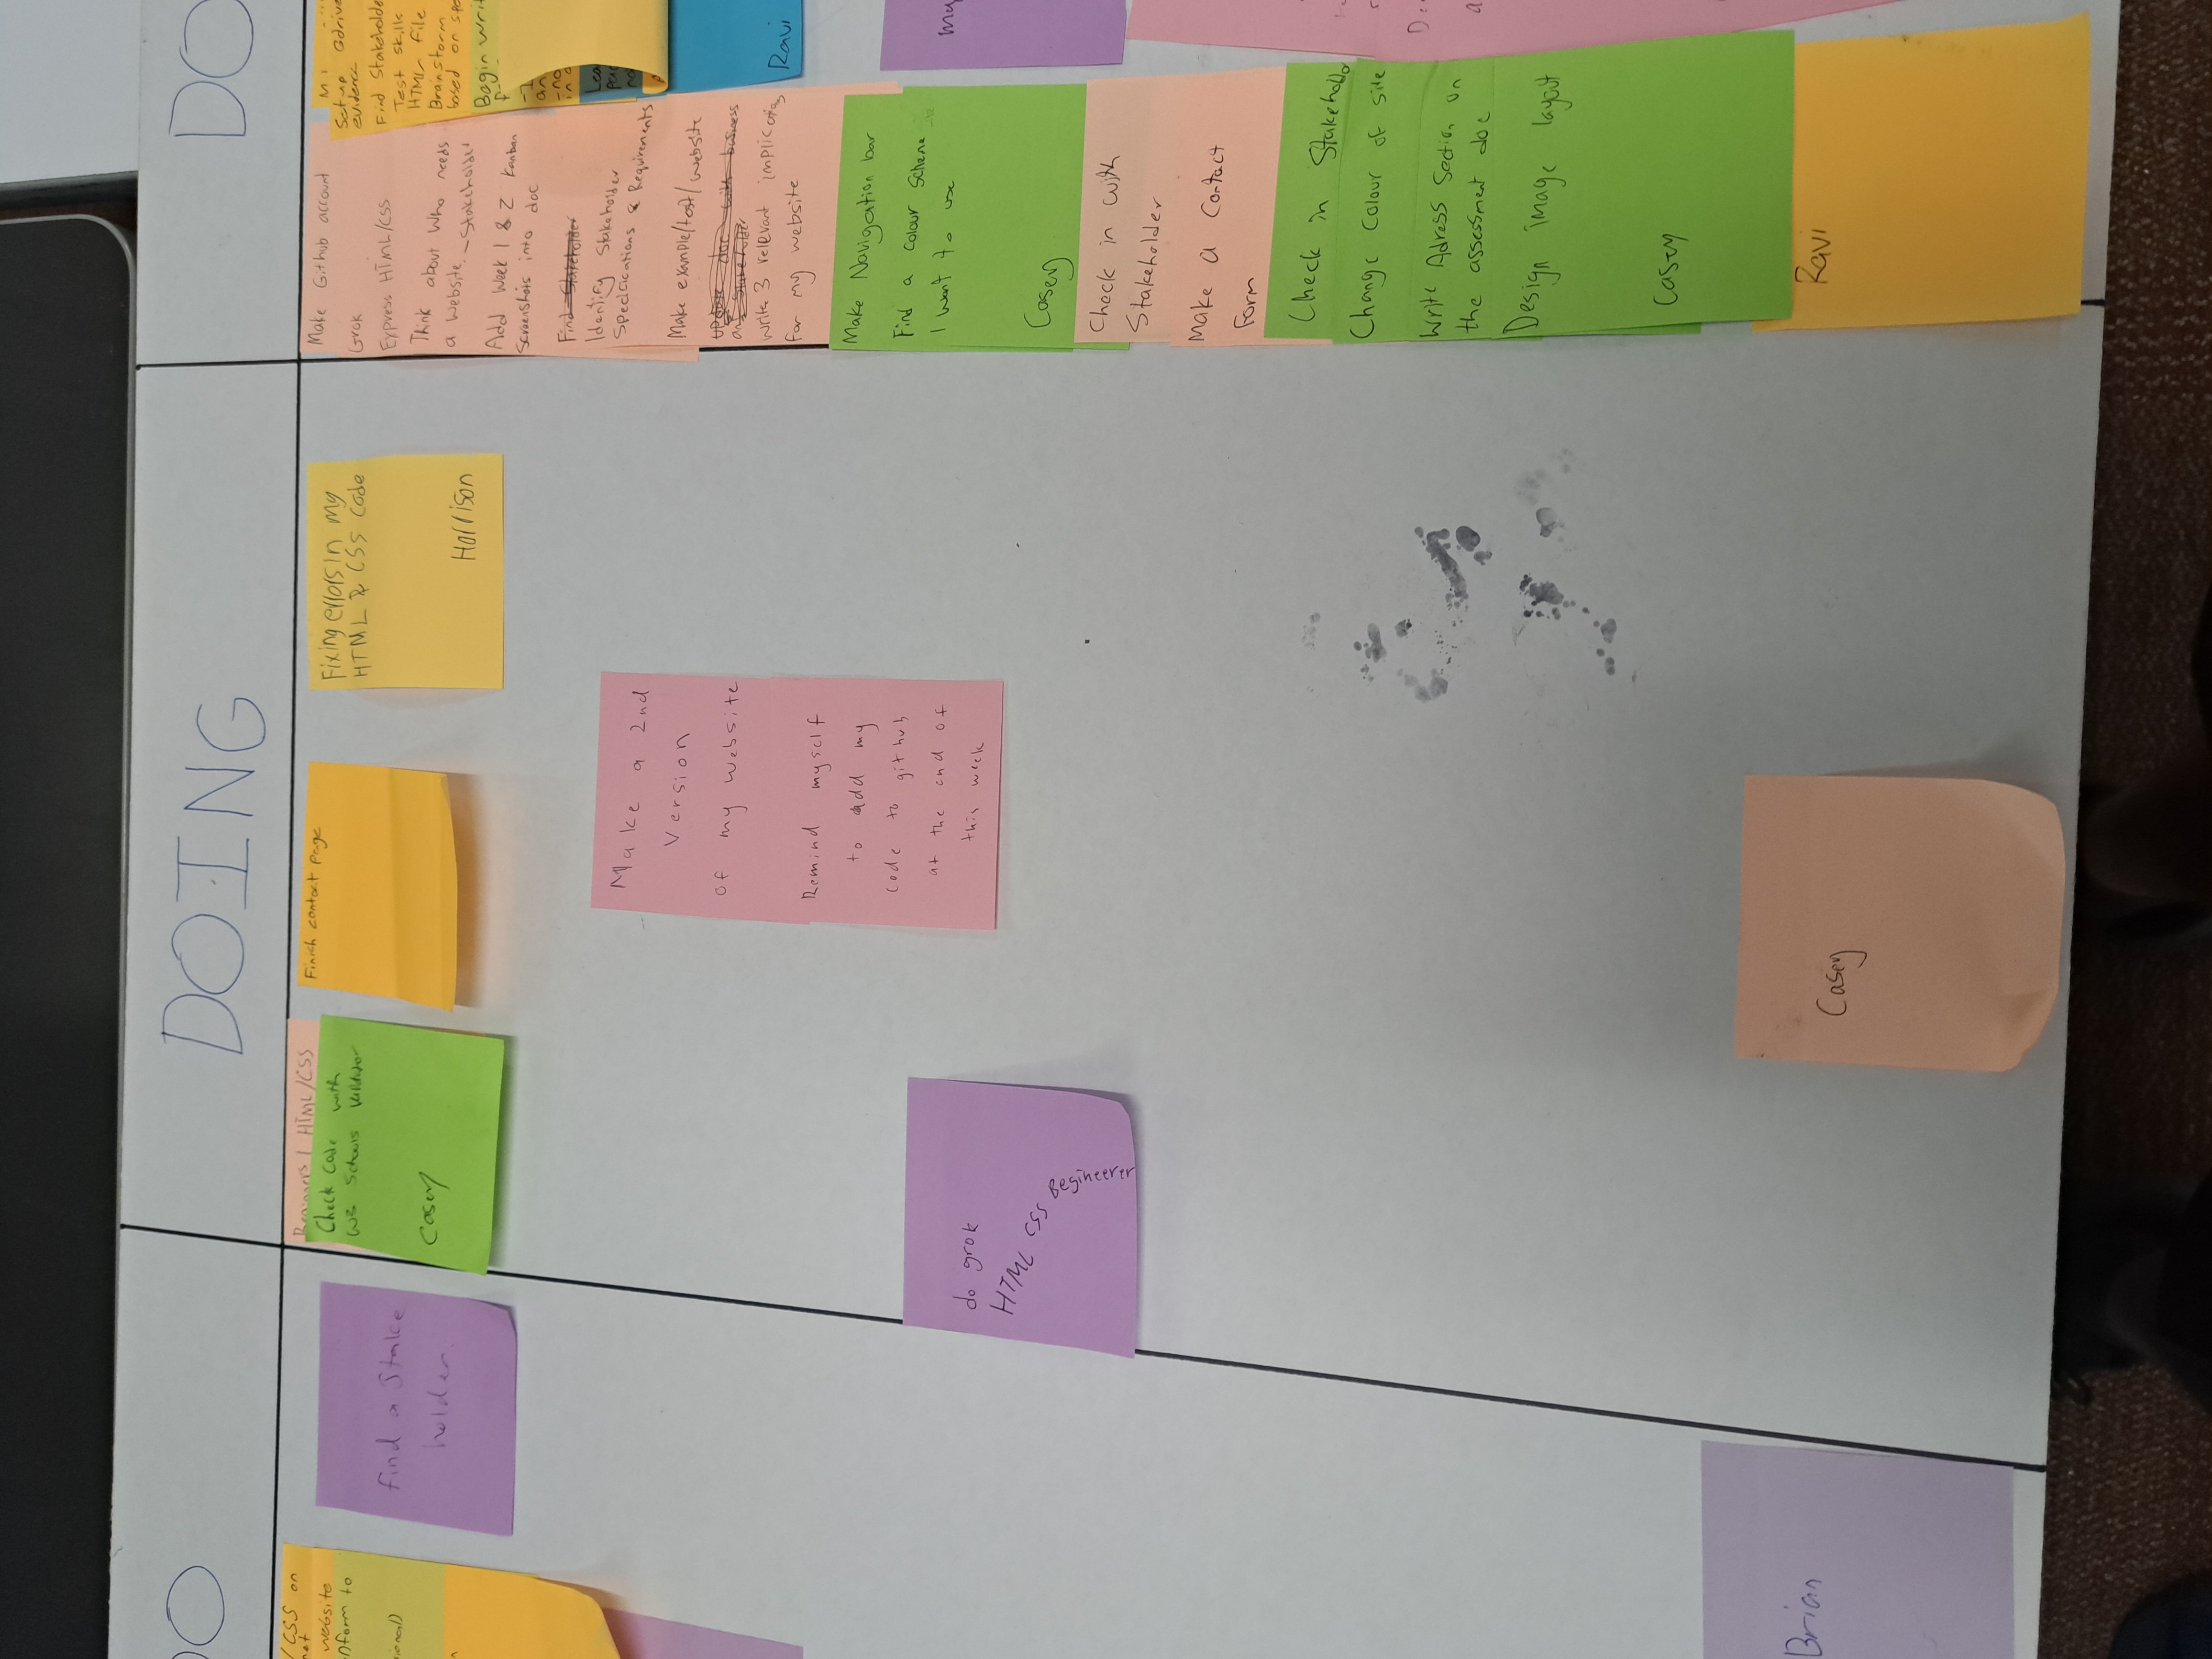 DO
DOING
DO
/CSS on
net
website
onform to
ional)
find a Stake
holder.
Brian
Beginners | HTML/CSS
Check Code with
W3 Schools Validator
Casey
Finish contact page
Fixing errors in my
HTML & CSS Code
Harrison
Make a 2nd
Version
of my website
Remind myself
to add my
code to github
at the end of
this week
do grok
HTML CSS Begineerer
Casey
Make Github account
Grok
Express HTML/CSS
Think about who needs
a website. - Stakeholder
Add Week 1 & 2 Kanban
Screenshots into doc
Find Stakeholder
Identify Stakeholder
Specicications & Requirements
Make example/test/website
update doc with business
and Stakeholder
write 3 relevant implications
for my website
Make Navigation bar
Find a colour scheme
I want to use
Casey
Check in with
Stakeholder
Make a Contact
Form
Check in Stakeholder
Change colour of site
Write Adress Section on
the assessment doc
Design image layout
Casey
Ravi
Set up Gdrive
evidence
Find Stakeholde
Test skills
HTML file
Brainstorm
based on spe
Begin writ
f
an
-no
in
Lea
pag
no
Ravi
my